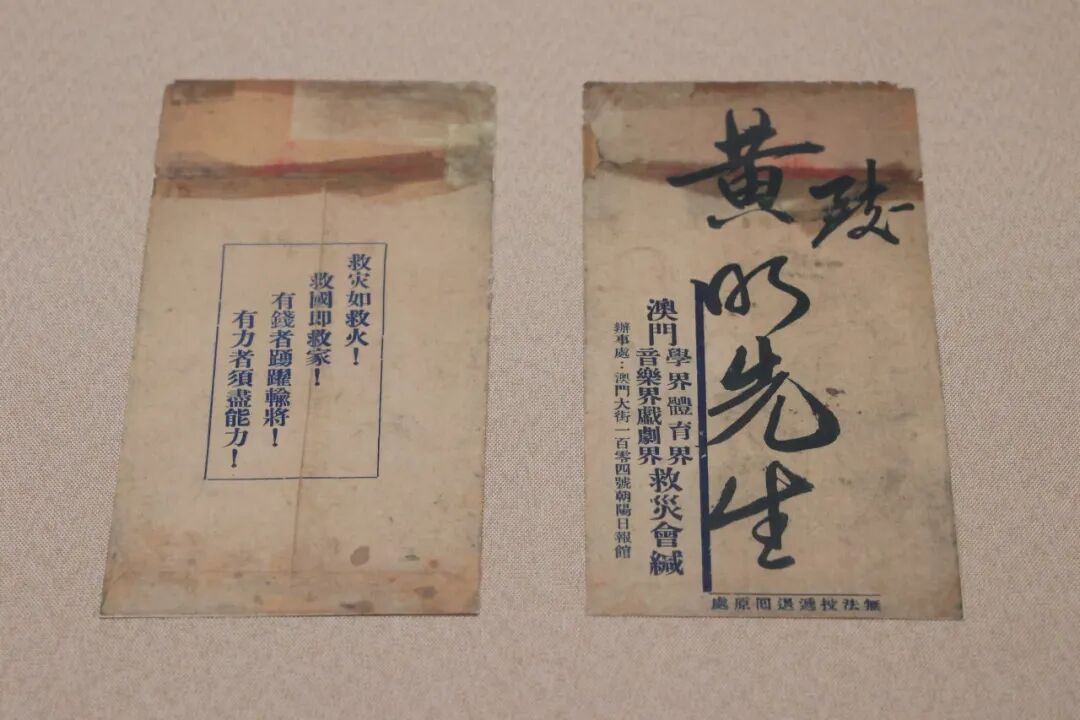 救灾如救火！
救國即救家！
有錢者踴躍輸將！
有力者須盡能力！
黃
明先生
澳門學界體育界音樂界戲劇界救災會緘
辦事處：澳門大街一百零四號朝陽日報館
無法投遞退回原處